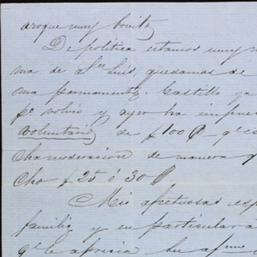 aroque muy bonita
De politica estamos muy m
ma de Sn Luis, quedamos de
ma permanente. Castillo ya
pe volvió y ayer ha impue
voluntario de £100
cha moderacion de manera q
cho £25 ó 30
Mis afectuosas esp
familia y en particular a
qe le aprecia su afmo